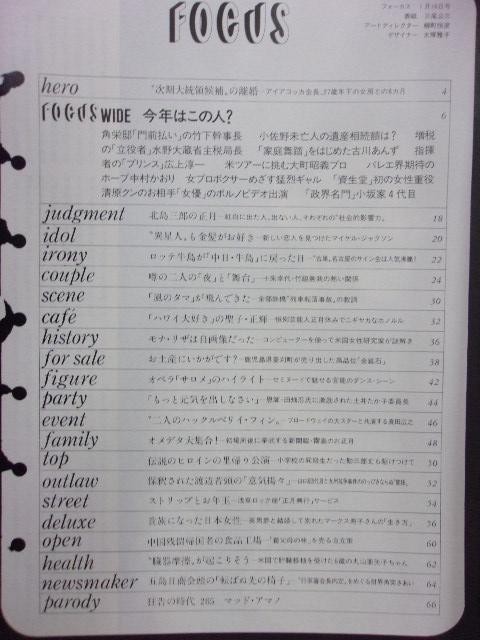 FOCUS
フォーカス 1月16日号
表紙 三尾公三
アートディレクター 柳町恒彦
デザイナー 大塚雅子
hero "次期大統領候補"の離婚—アイアコッカ会長、27歳年下の女房との8カ月 4
FOCUS WIDE 今年はこの人? 6
角栄邸「門前払い」の竹下幹事長 小佐野未亡人の遺産相続額は? 増税
の「立役者」水野大蔵省主税局長 「家庭舞踏」をはじめた古川あんず 指揮
者の「プリンス」広上淳一 米ツアーに挑む大町昭義プロ バレエ界期待の
ホープ中村かおり 女プロボクサーめざす猛烈ギャル 「資生堂」初の女性重役
清原クンのお相手「女優」のポルノビデオ出演 「政界名門」小坂家4代目
judgment 北島三郎の正月—紅白に出た人、出ない人、それぞれの"社会的影響力" 18
idol "異星人"も金髪がお好き—新しい恋人を見つけたマイケル・ジャクソン 20
irony ロッテ牛島が「中日・牛島」に戻った日—"古巣"名古屋のサイン会は人気沸騰! 22
couple 噂の二人の「夜」と「舞台」—十朱幸代・竹脇無我の熱い関係 24
scene 「風のタマ」が飛んできた—余部鉄橋"列車転落事故"の教訓 30
café 「ハワイ大好き」の聖子・正輝—恒例芸能人正月休みでニギヤカなホノルル 32
history モナ・リザは自画像だった—コンピューターを使って米国女性研究家が謎解き 36
for sale お土産にいかがです?—鹿児島県菱刈町が売り出した高品位「金鉱石」 38
figure オペラ「サロメ」のハイライト—セミヌードで魅せる官能のダンス・シーン 42
party 「もっと元気を出しなさい」—恩師・田畑忍氏に激励された土井たか子委員長 44
event "二人のハックルベリイ・フィン"—ブロードウェイの大スターと共演する真田広之 46
family オメデタ大集合!— 48
top 伝説のヒロインの里帰り公演— 50
outlaw 保釈された渡辺芳則の「意気揚々」— 52
street ストリップとお年玉—浅草ロック座「正月興行」サービス 54
deluxe 貴族になった日本女性—英男爵と結婚して別れたマークス寿子さんの「生き方」 56
open 中国残留帰国者の食品工場—「養父母の味」を売る自立策 60
health "臓器摩擦"が起こりそう—米国で肝臓移植を受けた6歳の丸山亜矢子ちゃん 62
newsmaker 五島日商会頭の「転ばぬ先の椅子」— 64
parody 狂告の時代 265 マッド・アマノ 66